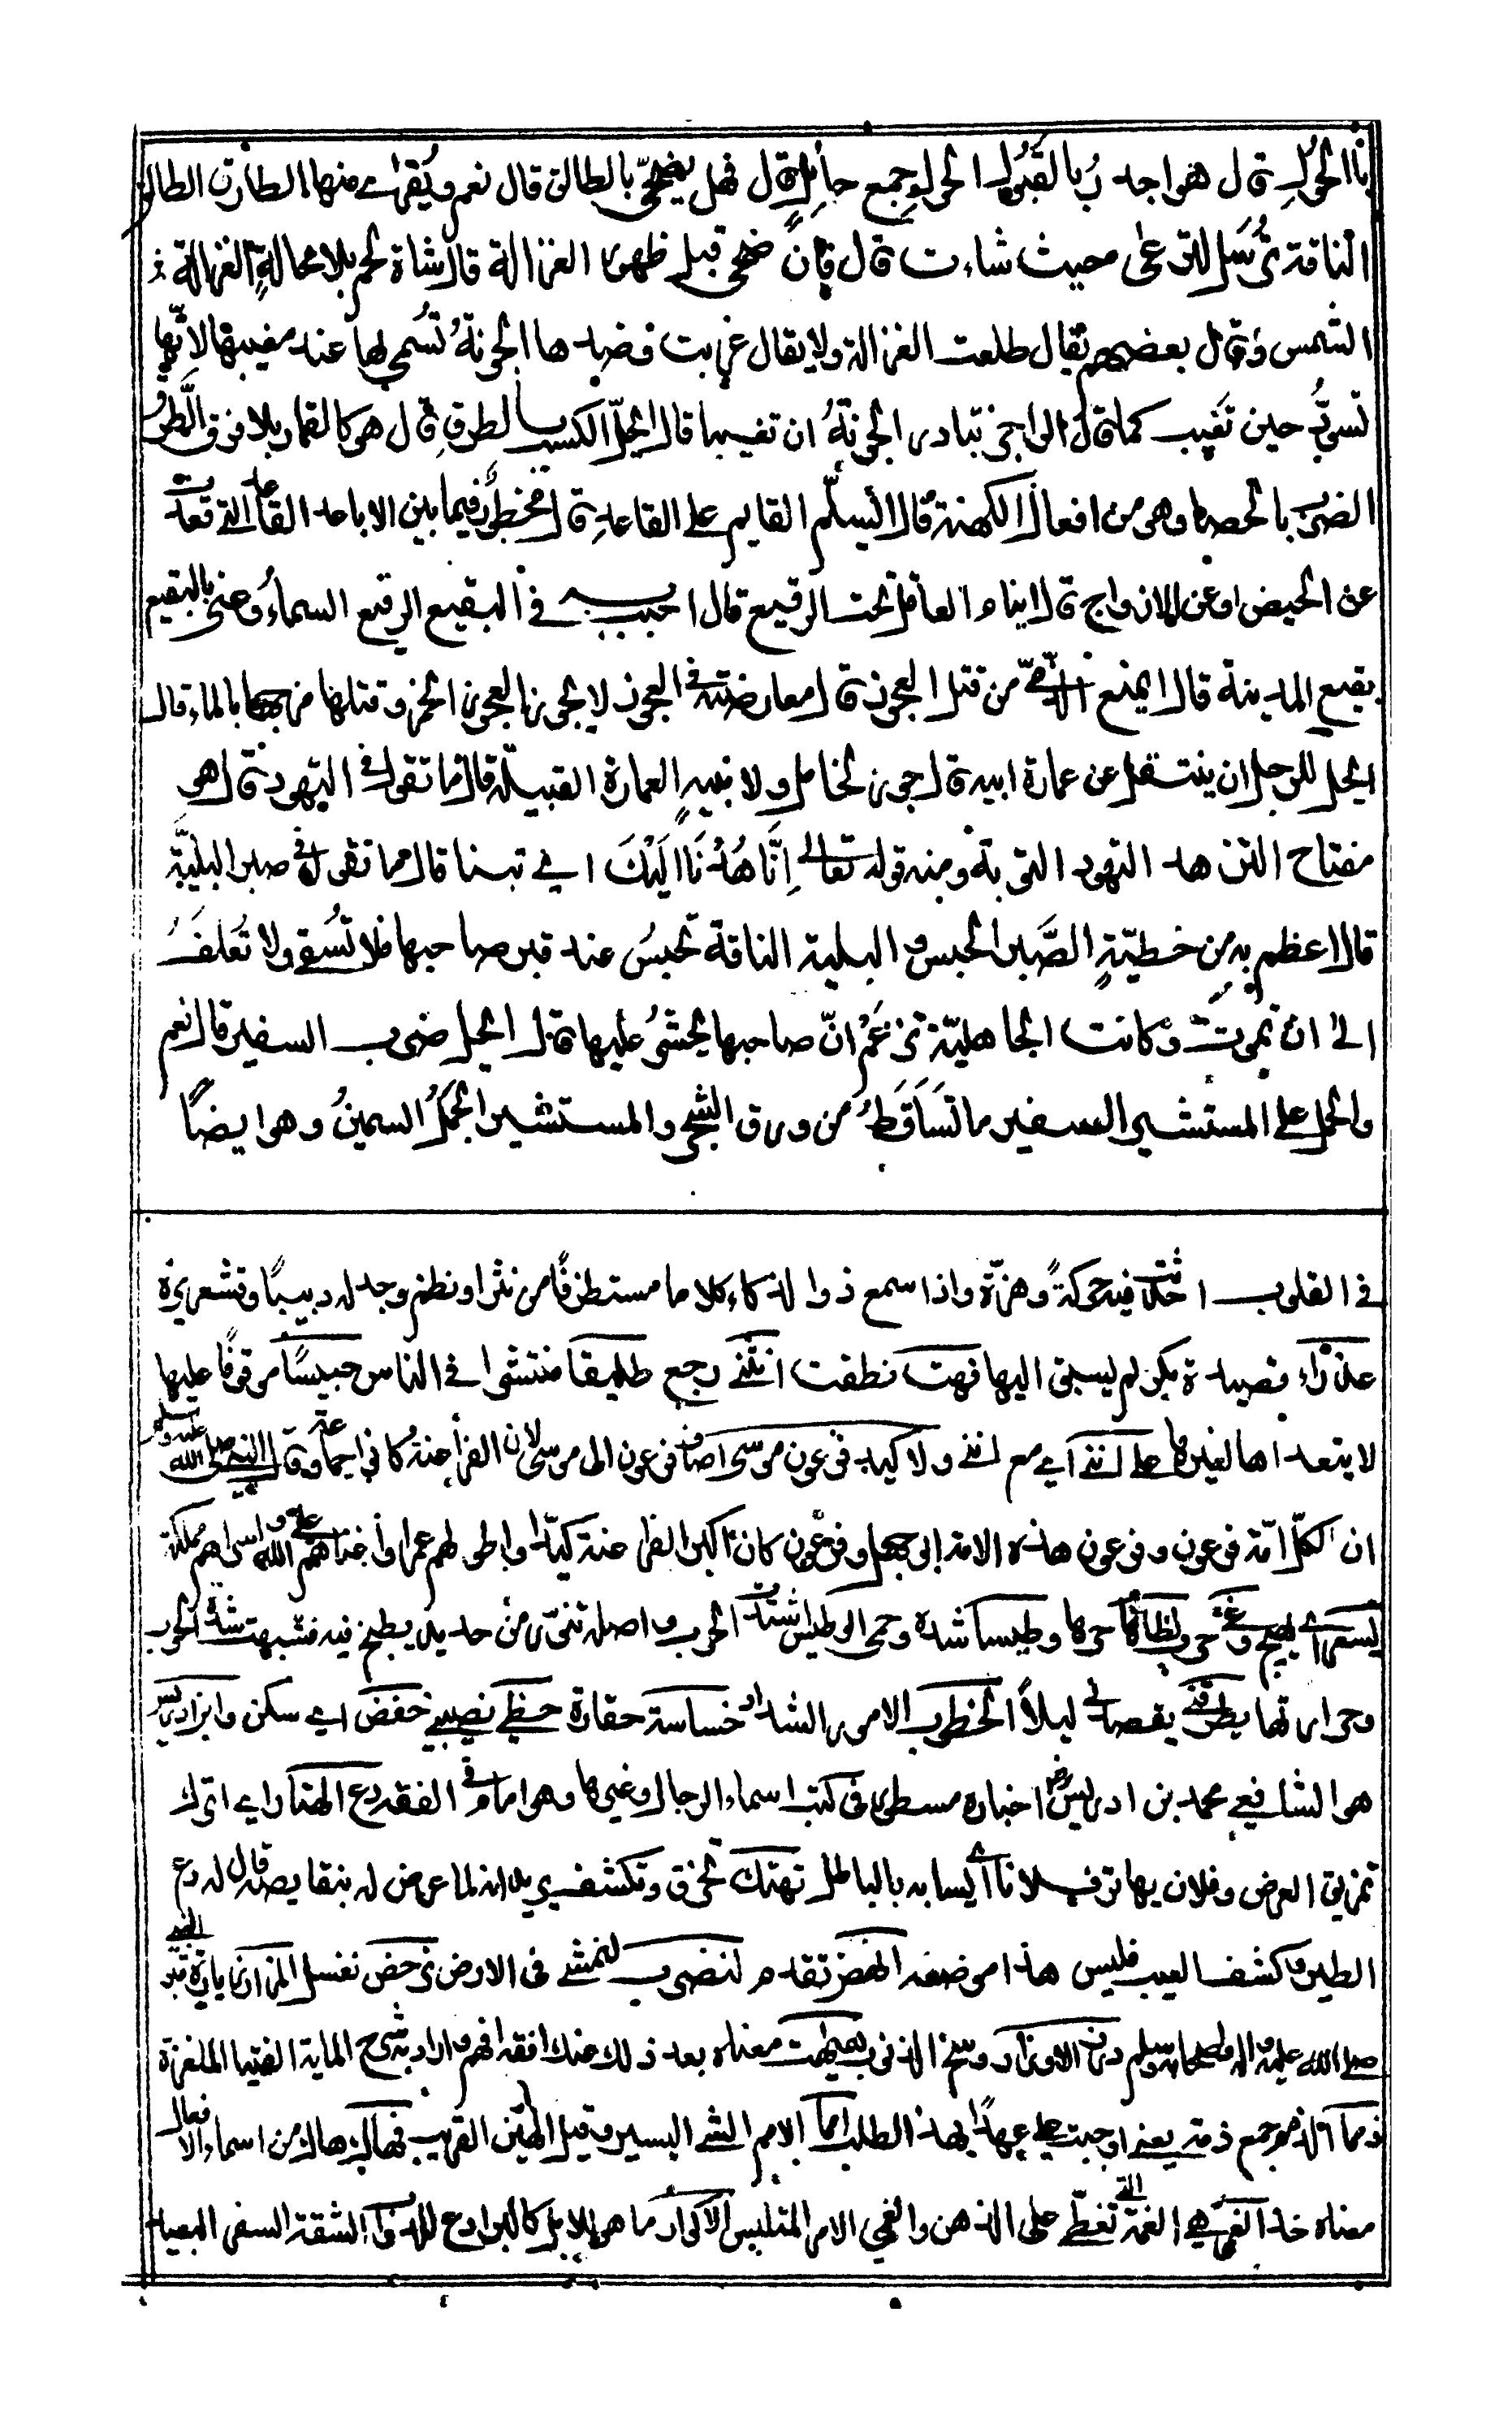 بالحول قال هو اجدر بالقبول الحول جمع حايل قال فهل يضحى بالطالق قال نعم ويقرى منها الطارق الطالق
الناقة ترسل للترعى حيث شاءت قال فان ضحى قبل ظهور الغزالة قال شاة لحم بلا محالة الغزالة
الشمس وقال بعضهم يقال طلعت الغزالة ولا يقال غربت فضدها الجونة تسمى لها عند مغيبها لانها
تسود حين تغيب كما قال الراجز تبادر الجونة ان تغيبها قال ايحل الكسب بالطرق قال هو كالقمار بلا فرق الطرق
الضرب بالحصا وهو من افعال الكهنة قال ايسلم القايم على القاعد قال محظور فيما بين الاباعد القاعد التي قعدت
عن الحيض او عن الازواج قال اينام العاقل تحت الرقيع قال احبب به في البقيع الرقيع السماء وعنى بالبقيع
بقيع المدينة قال ايمنع الذمى من قتل العجوز قال معارضته في العجوز لا يجوز العجوز الخمر وقتلها مزجها بالماء قال
ايحل للرجل ان ينتقل عن عمارة ابيه قال ما جوز لخامل ولا نبيه العمارة القبيلة قال ما تقول في التهود قال هو
مفتاح التزهد التهود التوبة ومنه قوله تعالى إنا هدنا اليك اي تبنا قال فما تقول في صبر البلية
قال اعظم به من خطية الصبر الحبس والبلية الناقة تحبس عند قبر صاحبها فلا تسقى ولا تعلف
الى ان تموت وكانت الجاهلية تزعم ان صاحبها يحشر عليها قال ايحل ضرب السفير قال نعم
والحمل على المستشير السفير ما تساقط من ورق الشجر والمستشير الجمل السمين وهو ايضا
في القلوب احدثت فيه حركة وهزة واذا سمع ذوا الذكاء كلاما مستطرفا من نثر او نظم وجد له دبيبا وقشعريرة
عذراء قصيدة بكر لم يسبق اليها فهت نطقت انثنى رجع طليقا منتشرا في الناس حبيسا موقوفا عليها
لا يتعداها لغيرها على انني اي مع انني ولا كيد فرعون موسى اضاف فرعون الى موسى لان الفراعنة كانوا جماعة وقال النبي صلى الله عليه وسلم
ان لكل امة فرعون وفرعون هذه الامة ابو جهل وفرعون كان اكبر الفراعنة كيدا واطولهم عمرا واخذهم الله واسراهم مملكة
يسعر اي يهيج وغى حرب لظاها حرها وطيسا شدة وحمى الوطيس اشتدت الحرب واصله تنور من حديد يطبخ فيه فشبهت شدة الحرب
وحرارتها يطرقني يقصدني ليلا الخطوب الامور الشداد خساسة حقارة حظي نصيبي خفض اي سكن وابن ادريس
هو الشافعي محمد بن ادريس اخباره مسطورة في كتب اسماء الرجال وغيرها وهو امام في الفقه دع الهتار اي اترك
تمزيق العرض وفلان يهاتر فلانا اي يسابه بالباطل تهتك تخرق وتكشف يريد انه لما عرض له بنقايصه قال له دع
الطيس وكشف العيب فليس هذا موضعه انهض تقدم لنضرب لنمشي في الارض نرحض نغسل المزار زيارة قبر النبي
صلى الله عليه واله واصحابه وسلم درن الاوزار ووسخ الذنوب هيهات معناه بعد ذلك عنك افقه افهم واراد بشرح المائة الفتيا الملغزة
ذمما الذمم جمع ذمة يعني اوجبت علي عهدا بهذا الطلب امما الامم الشي اليسير وقيل الهين القريب فهاك هاك من اسماء الافعال
معناه خذ الغمى هي الغمة التي تغطي على الذهن والغمى الامر الملتبس الاكوار ما هو للابل كالبرادع للدواب الشقة السفر البعيد